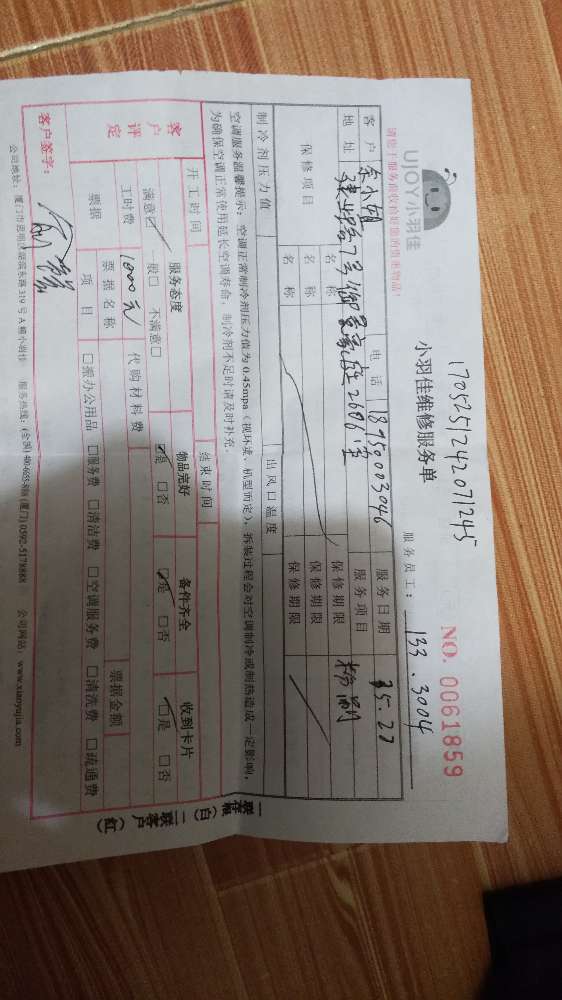 UJOY小羽佳
请您于服务前收检好您的贵重物品!
1705251242071245
小羽佳维修服务单
NO. 0061859
服务员工: 133、3004
客户 余小姐 电话 18750003046 服务日期 5.27
地址 建业路7号御景豪庭2606室 服务项目 粉刷
保修项目 名称 保修期限
名称 保修期限
名称 保修期限
制冷剂压力值 出风口温度
空调服务温馨提示:空调正常制冷剂压力值为0.45mpa(视环境、机型而定),拆装过程会对空调制冷或制热造成一定影响,
为确保空调正常使用延长空调寿命,制冷剂不足时请及时补充。
开工时间 结束时间
客户评定 服务态度 物品完好 备件齐全 收到卡片
满意☑ 一般☐ 不满意☐ ☑是 ☐否 ☑是 ☐否 ☑是 ☐否
工时费 1000元 代购材料费
票据 票据名称 票据金额
项目 ☐办公用品 ☐服务费 ☐清洁费 ☐空调服务费 ☐清洗费 ☐疏通费
客户签字:
公司地址:厦门市思明区 319号A幢小羽佳 服务热线:(全国)400-6655-888 (厦门)0592-5178888 公司网站:www.xiaoyujia.com
一联存根(白) 二联客户(红)